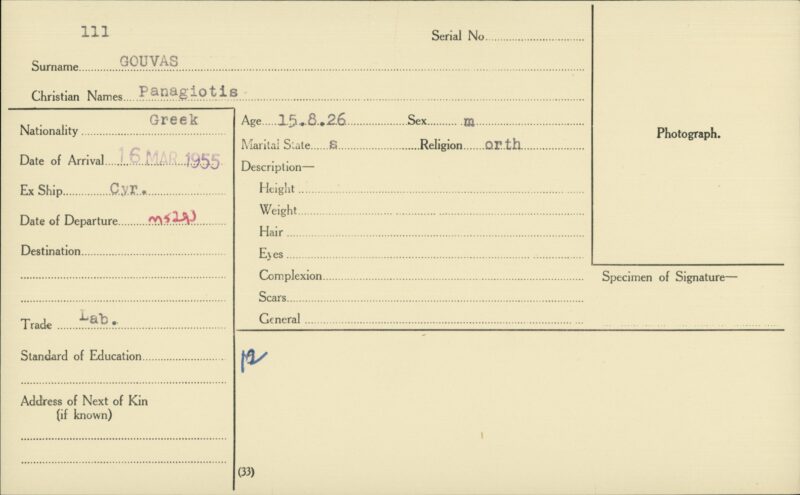 111
Serial No.
Surname GOUVAS
Christian Names Panagiotis
Nationality Greek
Date of Arrival 16 MAR 1955
Ex Ship Cyr.
Date of Departure
Destination
Trade Lab.
Standard of Education
Address of Next of Kin
(if known)
Age 15.8.26 Sex m
Marital State s Religion orth
Description—
Height
Weight
Hair
Eyes
Complexion
Scars
General
(33)
Photograph.
Specimen of Signature—